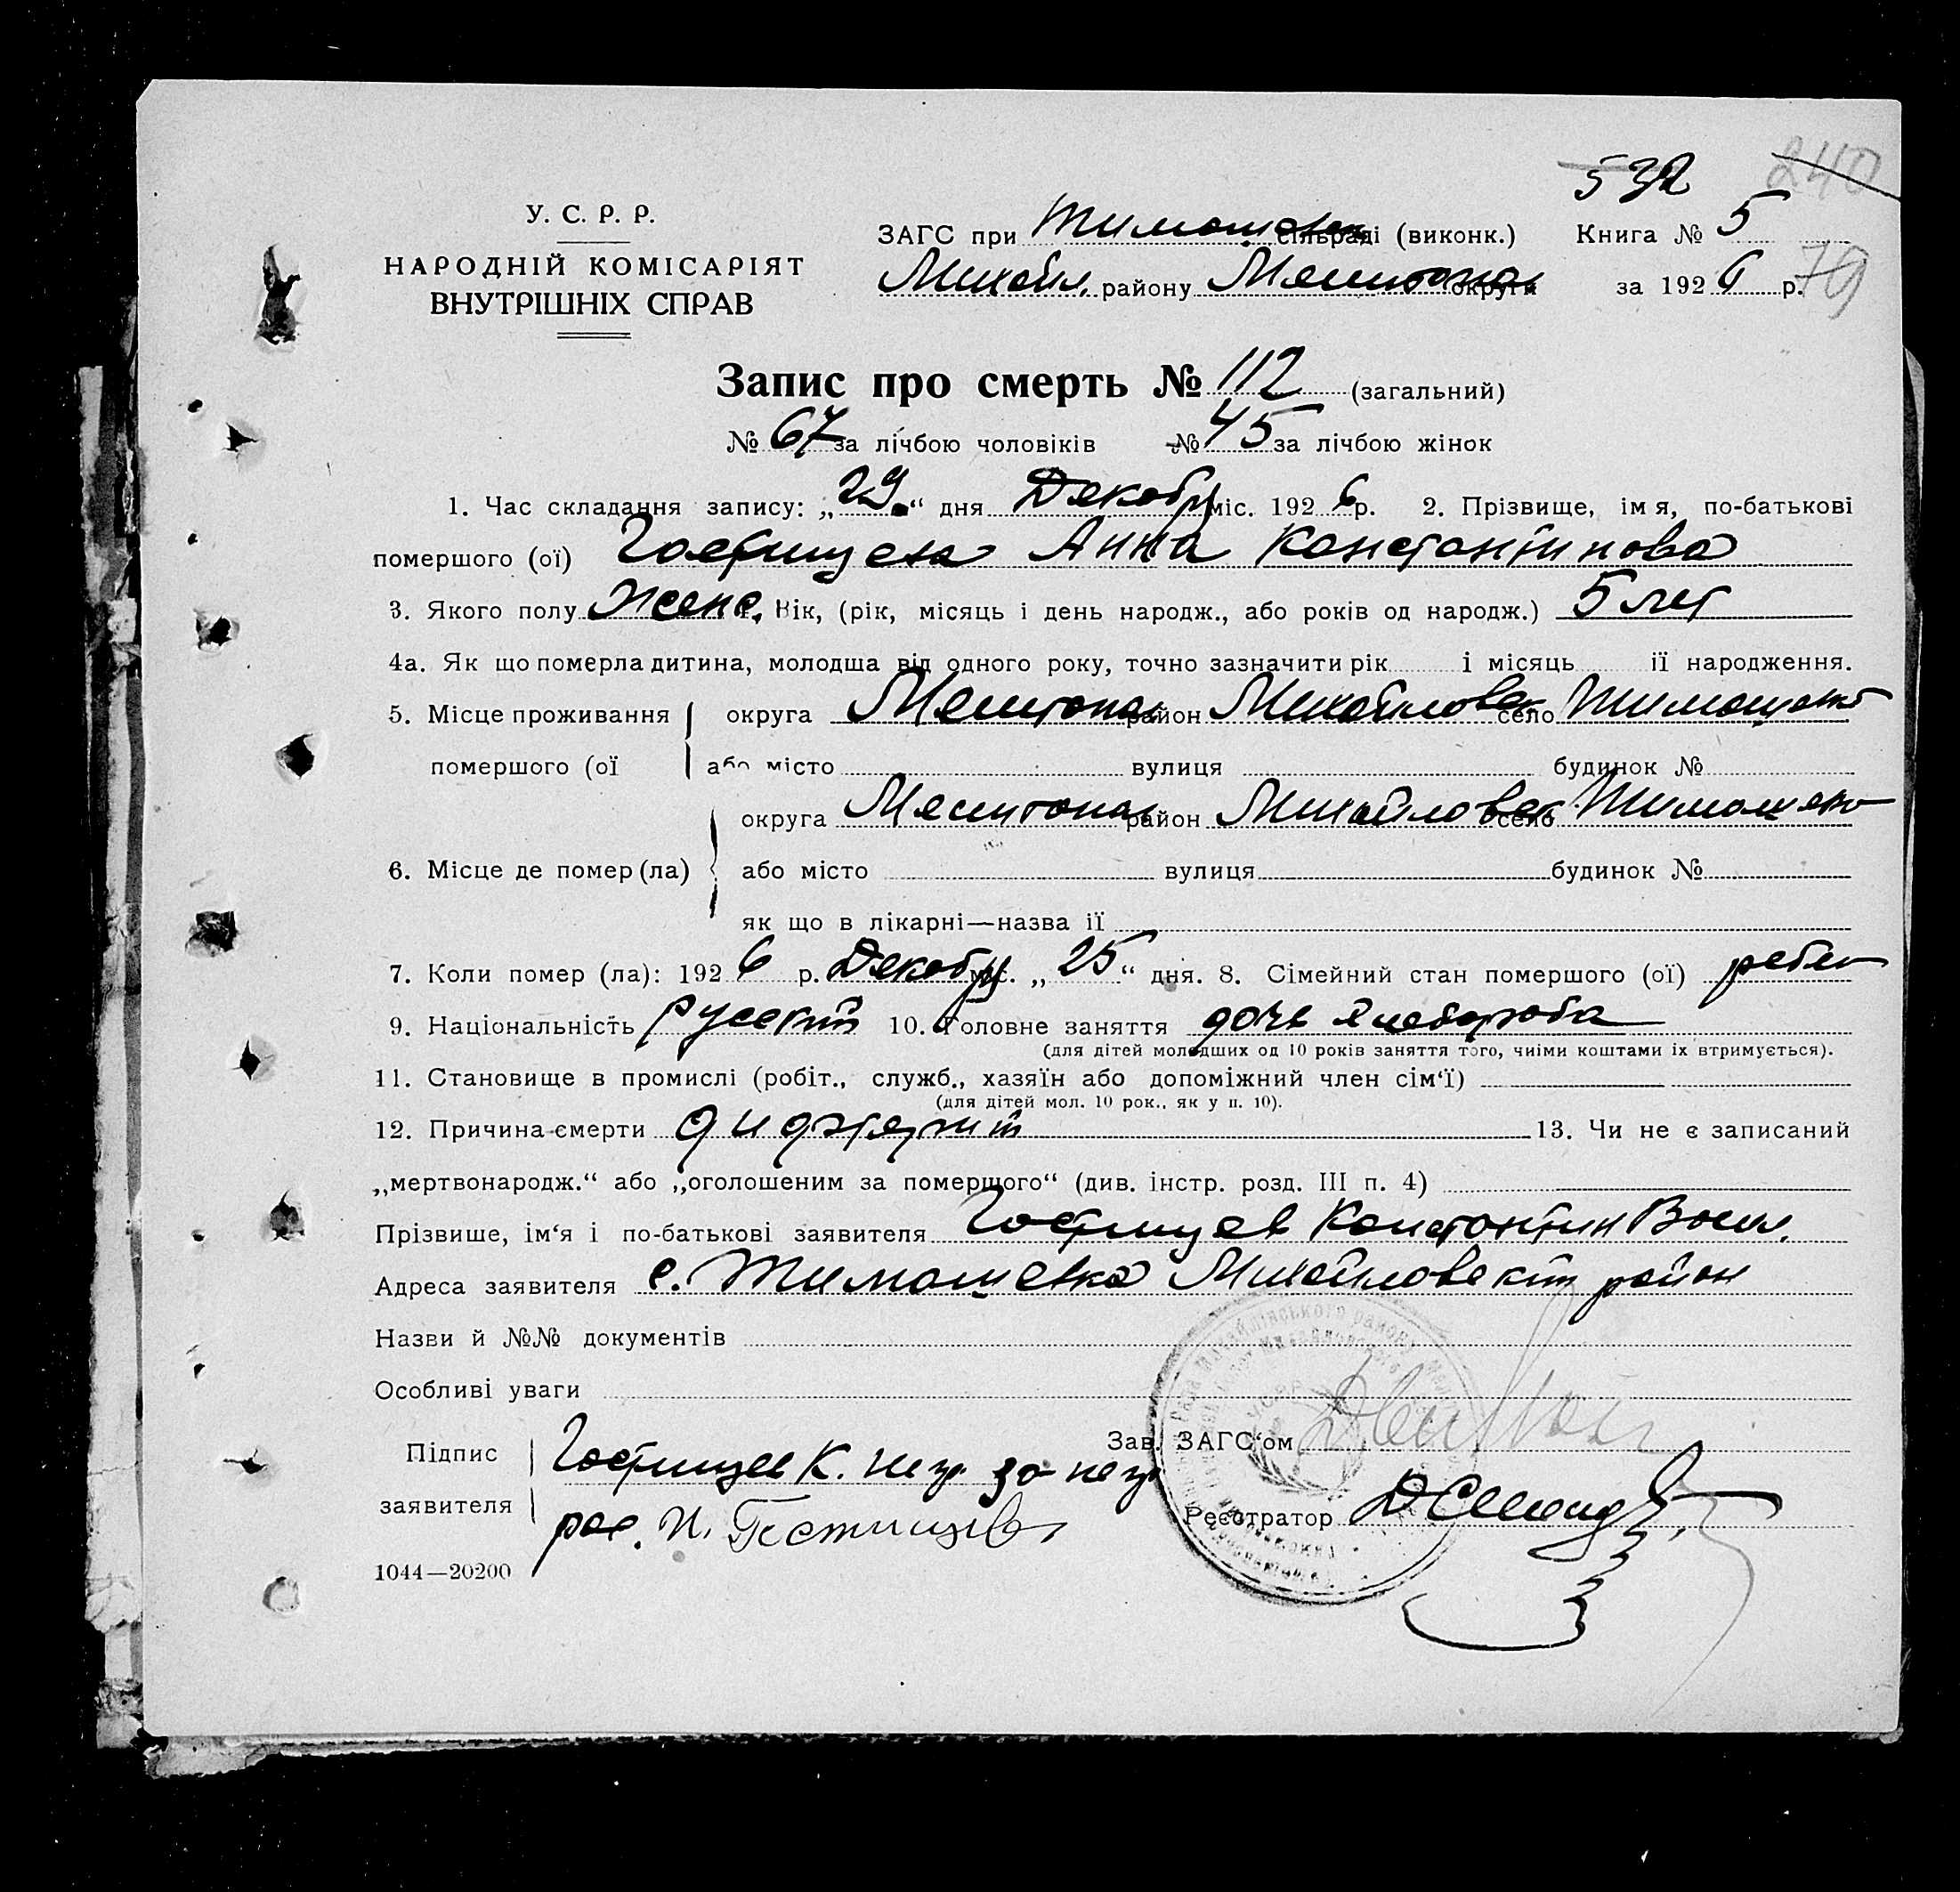 532 240
У. С. Р. Р.
НАРОДНІЙ КОМІСАРІЯТ
ВНУТРІШНІХ СПРАВ
ЗАГС при Тимошевк сільраді (виконк.) Книга № 5
Михайл. району Мелитопол округи за 1926 р. 79
Запис про смерть № 112 (загальний)
№ 67 за лічбою чоловіків № 45 за лічбою жінок
1. Час складання запису: „29“ дня Декабр міс. 1926 р. 2. Прізвище, імя, по-батькові
помершого (ої) Гостищева Анна Константинова
3. Якого полу Женс. 4. Вік, (рік, місяць і день народж., або років од народж.) 5 лет
4а. Як що померла дитина, молодша від одного року, точно зазначити рік і місяць її народження.
5. Місце проживання округа Мелитопол район Михайловск село Тимошевк
помершого (ої або місто вулиця будинок №
округа Мелитопол район Михайловск село Тимошевк
6. Місце де помер (ла) або місто вулиця будинок №
як що в лікарні—назва ії
7. Коли помер (ла): 1926 р. Декабр міс. „25“ дня. 8. Сімейний стан помершого (ої) ребен
9. Національність русский 10. Головне заняття дочь хлебороба
(для дітей молодших од 10 років заняття того, чиіми коштами іх втримується).
11. Становище в промислі (робіт., служб., хазяїн або допоміжний член сім‘ї)
(для дітей мол. 10 рок., як у п. 10).
12. Причина смерти дифтерит 13. Чи не є записаний
„мертвонародж.“ або „оголошеним за померщого“ (див. інстр. розд. III п. 4)
Прізвише, ім‘я і по-батькові заявителя Гостищев Константин Васил.
Адреса заявителя с. Тимошевка Михайловский район
Назви й №№ документів
Особливі уваги
Підпис Гостищев К. негр за негр Зав. ЗАГС‘ом
заявителя рос. И. Гостищев Реєстратор
1044—20200